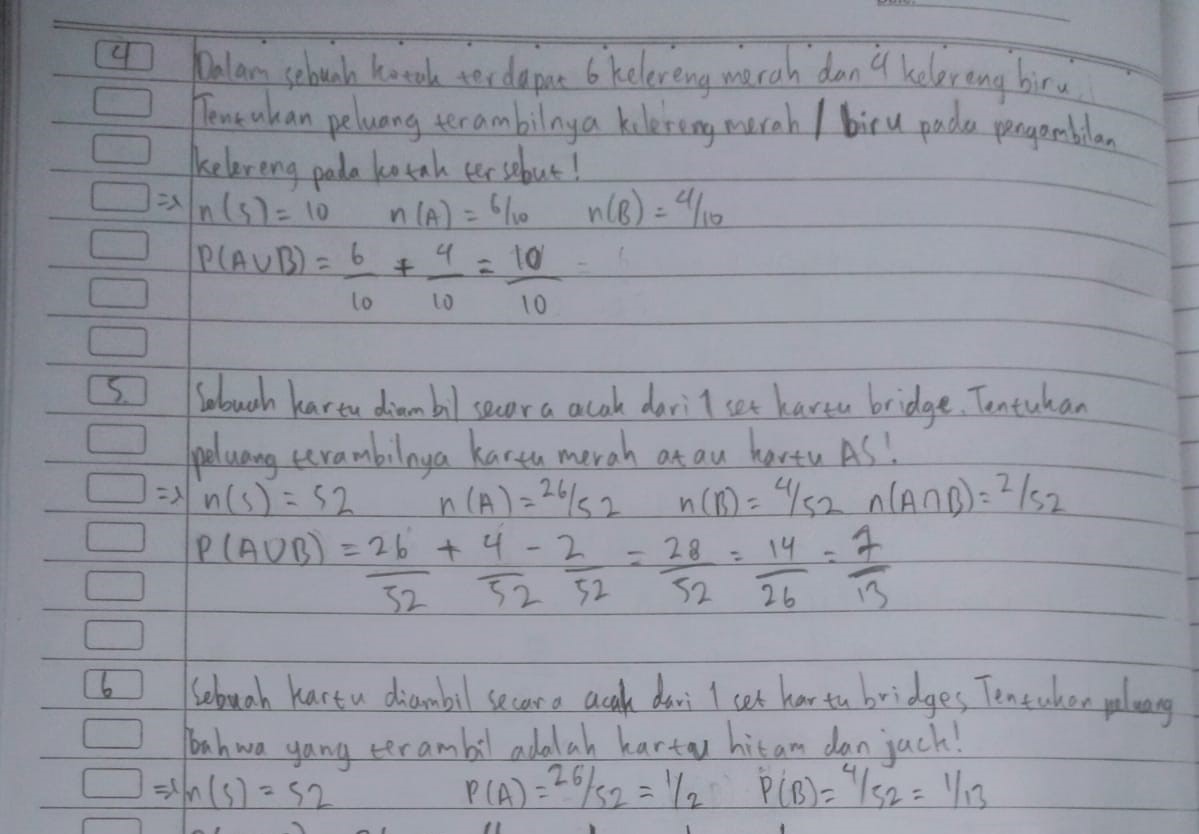 4 Dalam sebuah kotak terdapat 6 kelereng merah dan 4 kelereng biru.
Tentukan peluang terambilnya kelereng merah / biru pada pengambilan
kelereng pada kotak tersebut!
=> n(S) = 10 n(A) = 6/10 n(B) = 4/10
P(A∪B) = 6/10 + 4/10 = 10/10
5. Sebuah kartu diambil secara acak dari 1 set kartu bridge. Tentukan
peluang terambilnya kartu merah atau kartu AS!
=> n(S) = 52 n(A) = 26/52 n(B) = 4/52 n(A∩B) = 2/52
P(A∪B) = 26/52 + 4/52 - 2/52 = 28/52 = 14/26 = 7/13
6 Sebuah kartu diambil secara acak dari 1 set kartu bridges, Tentukan peluang
bahwa yang terambil adalah kartu hitam dan jack!
=> n(S) = 52 P(A) = 26/52 = 1/2 P(B) = 4/52 = 1/13